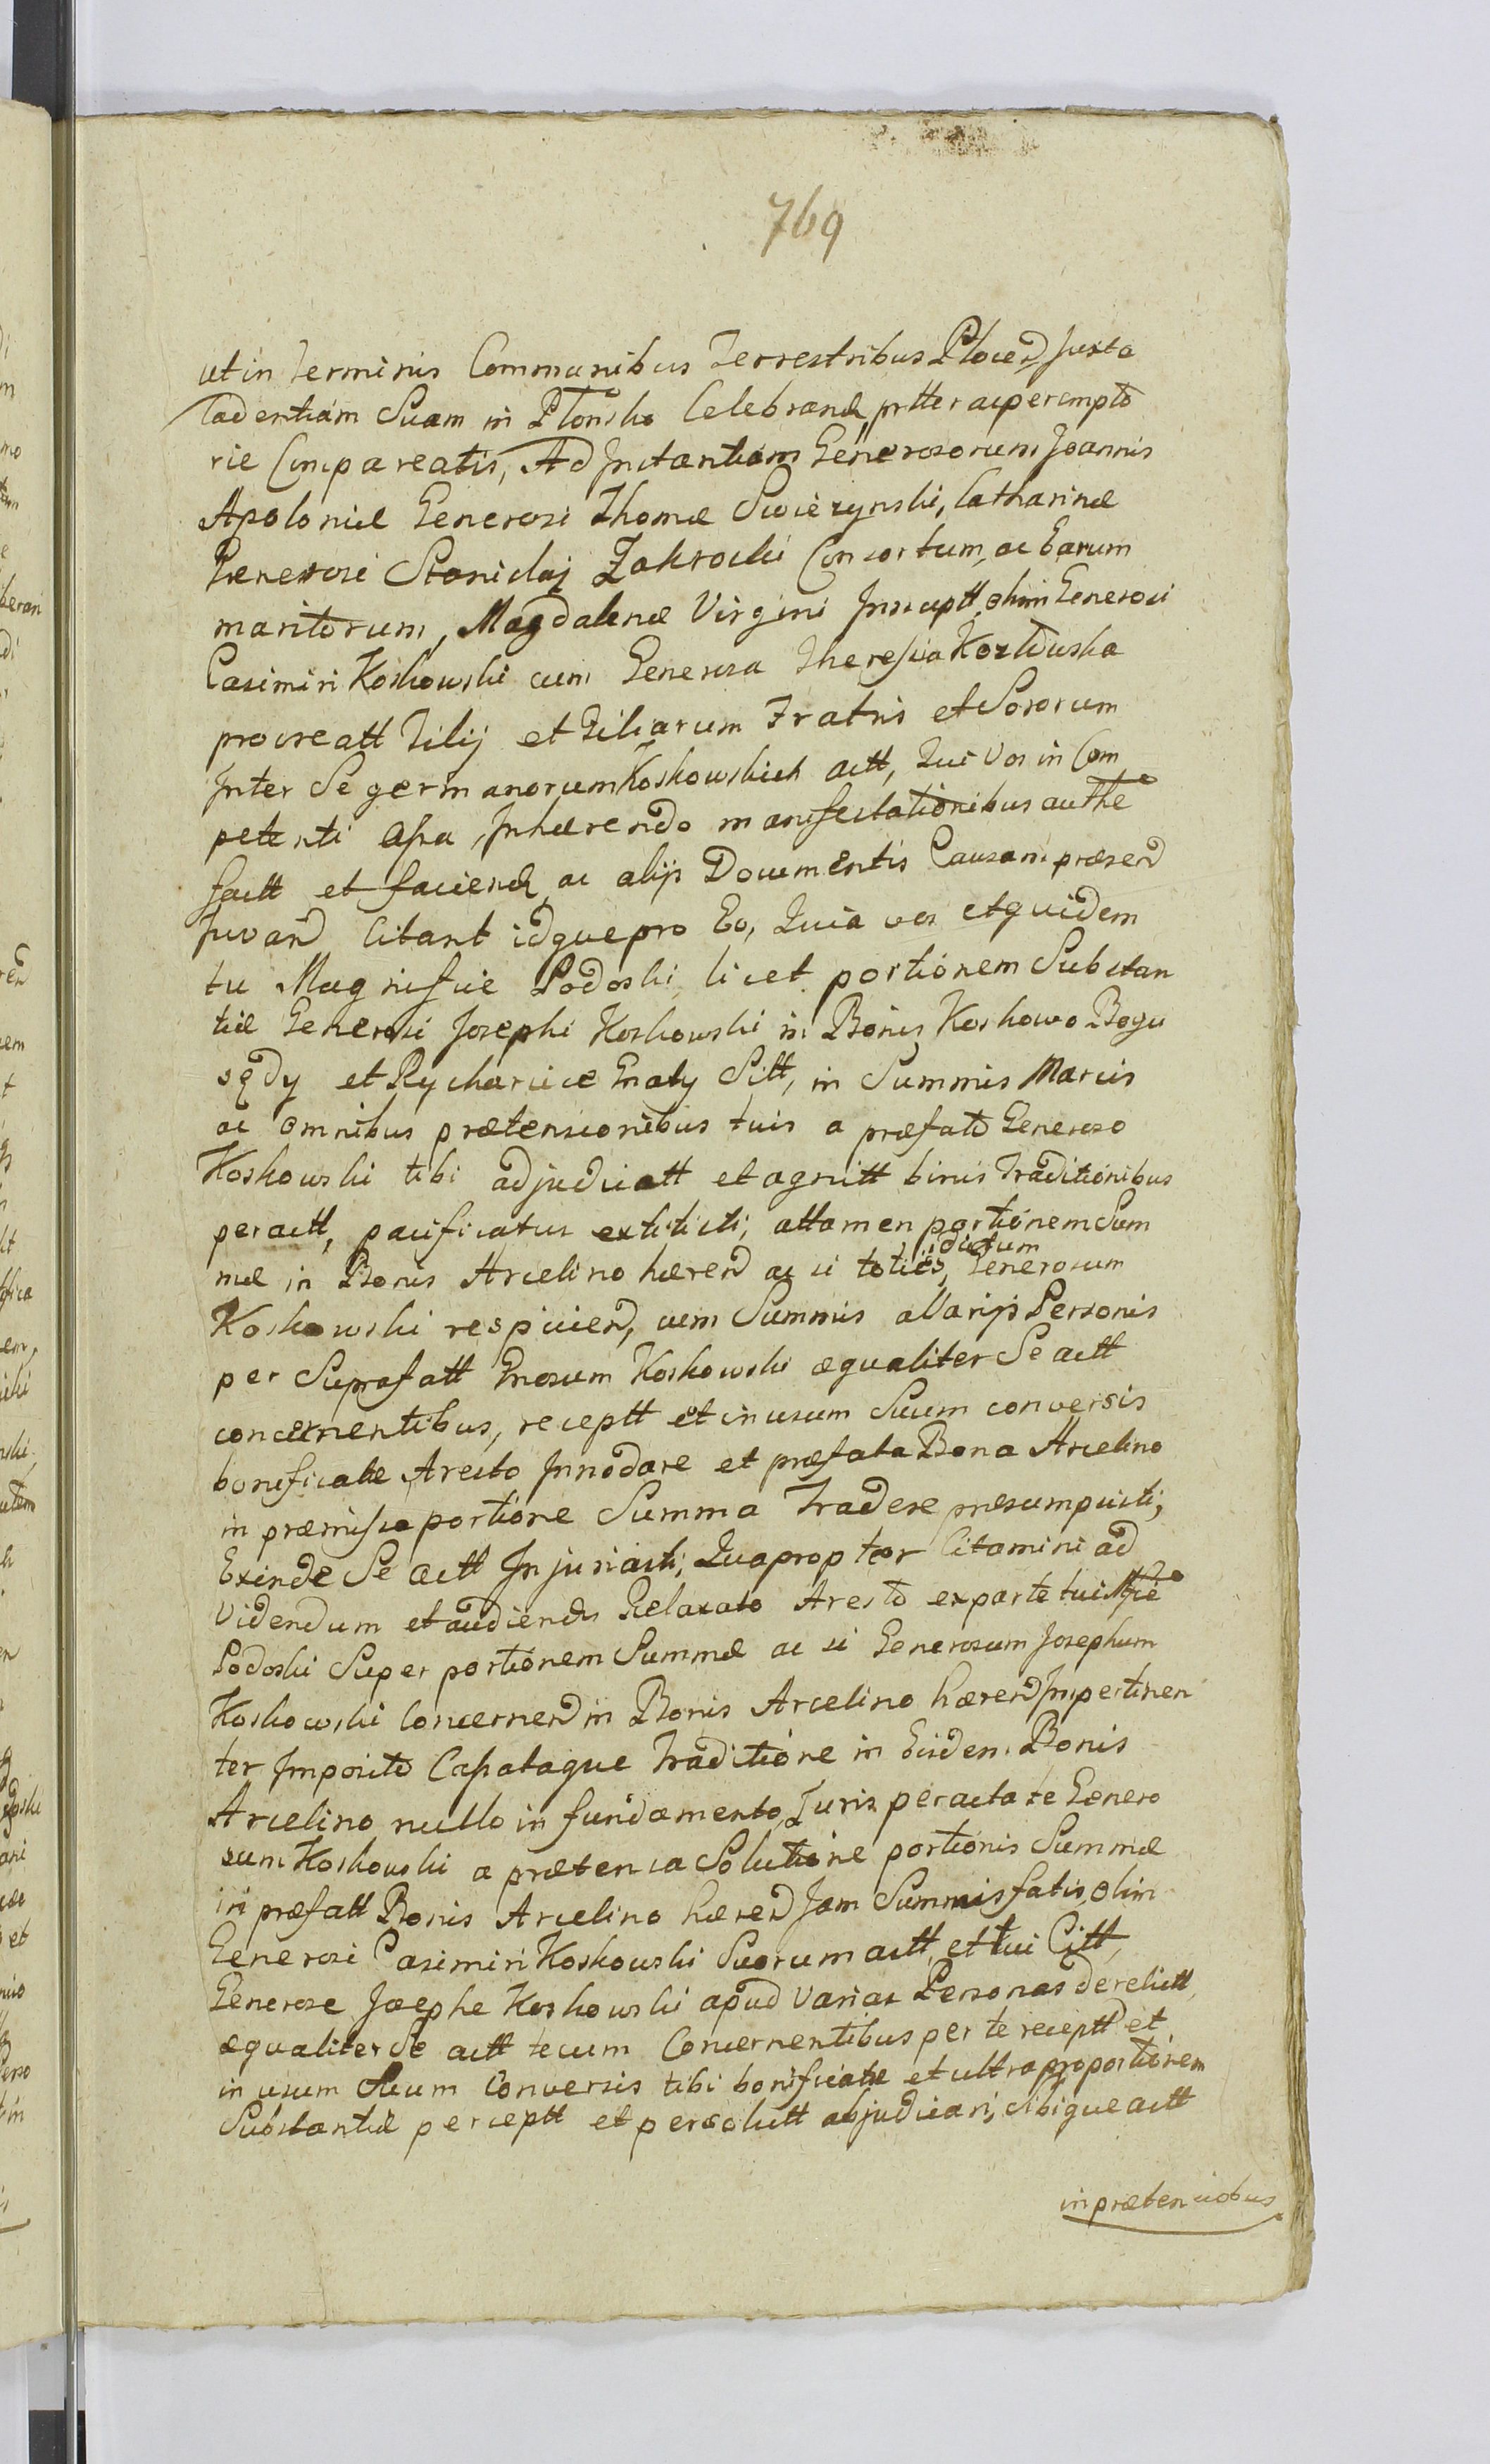 769
ut in Terminis Communibus Terrestribus Plocen Juxta
Cadentiam Suam in Płońsko Celebrand, prtter ac perempto
rie Compareatis, Ad Instantiam Generosorum Joannis
Apoloniæ Generosi Thomæ Swierzynski, Catharinæ
Generosi Stanislaj Zakrocki Consortum, ac Earum
maritorum, Magdalenæ Virgini olim Generosi
Casimiri Koskowski cum Generosa Theressia Kozłowska
procreatt Filij et Filiarum Fratris et Sororum
Inter Se germanorum Koskowskich actt, Qui Vos in Com
petenti Assa, Inhærendo manifestationibus authe
factt et faciend, ac alijs Documentis Causam præsen
Juvand Citant idque pro Eo, Quia vos et quidem
tu Magnifice Podoski, licet portionem Substan
tiæ Generosi Josephi Koskowski in Bonis Koskowo Bogu
sędy et Rycharcice Gnaty Sitt, in Summis Marcis
ac omnibus prætensionibus tuis a præfato Generoso
Koskowski tibi adjudicatt et agnitt binis Traditionibus
peractt, pacificatus extitisti, attamen portionem Sum
mæ in Bonis Arcelino hæren ac si toties dictum Generosum
Koskowski respicien, cum Summis a Varijs Personis
per Supræfatt Gnosum Koskowski æqualiter Se actt
concernentibus, receptt et in usum Suum conversis
bonificate Aresto Innodare et præfata Bona Arcelino
in præmissa portione Summa Tradere præsumpsisti;
Exinde Se actt Injuriasti; Quapropter Citamini ad
Videndum et audiendu Relaxato Aresto ex parte tui Mfice
Podoski Super portionem Summæ ac si Generosum Josephum
Koskowski Concernen in Bonis Arcelino hæren Impertinen
ter Imposito Cassataque Traditione in Eisdem Bonis
Arcelino nullo in fundamento Juris peracta te Genero
sum Koskowski a prætensa Solutione portionis Summæ
in præfatt Bonis Arcelino hæren Jam Summis fatis, Olim
Generosi Casimiri Koskowski Suorum actt, et tui Citt,
Generose Josephe Koskowski apud Varias Personas derelictt,
æqualiter Se actt tecum Concernentibus per te receptt et
in usum Suum Conversis tibi bonificate et ultra proportionem
Substantiæ perceptt et persolutt abjudicari, sibique actt
in prætensiobus